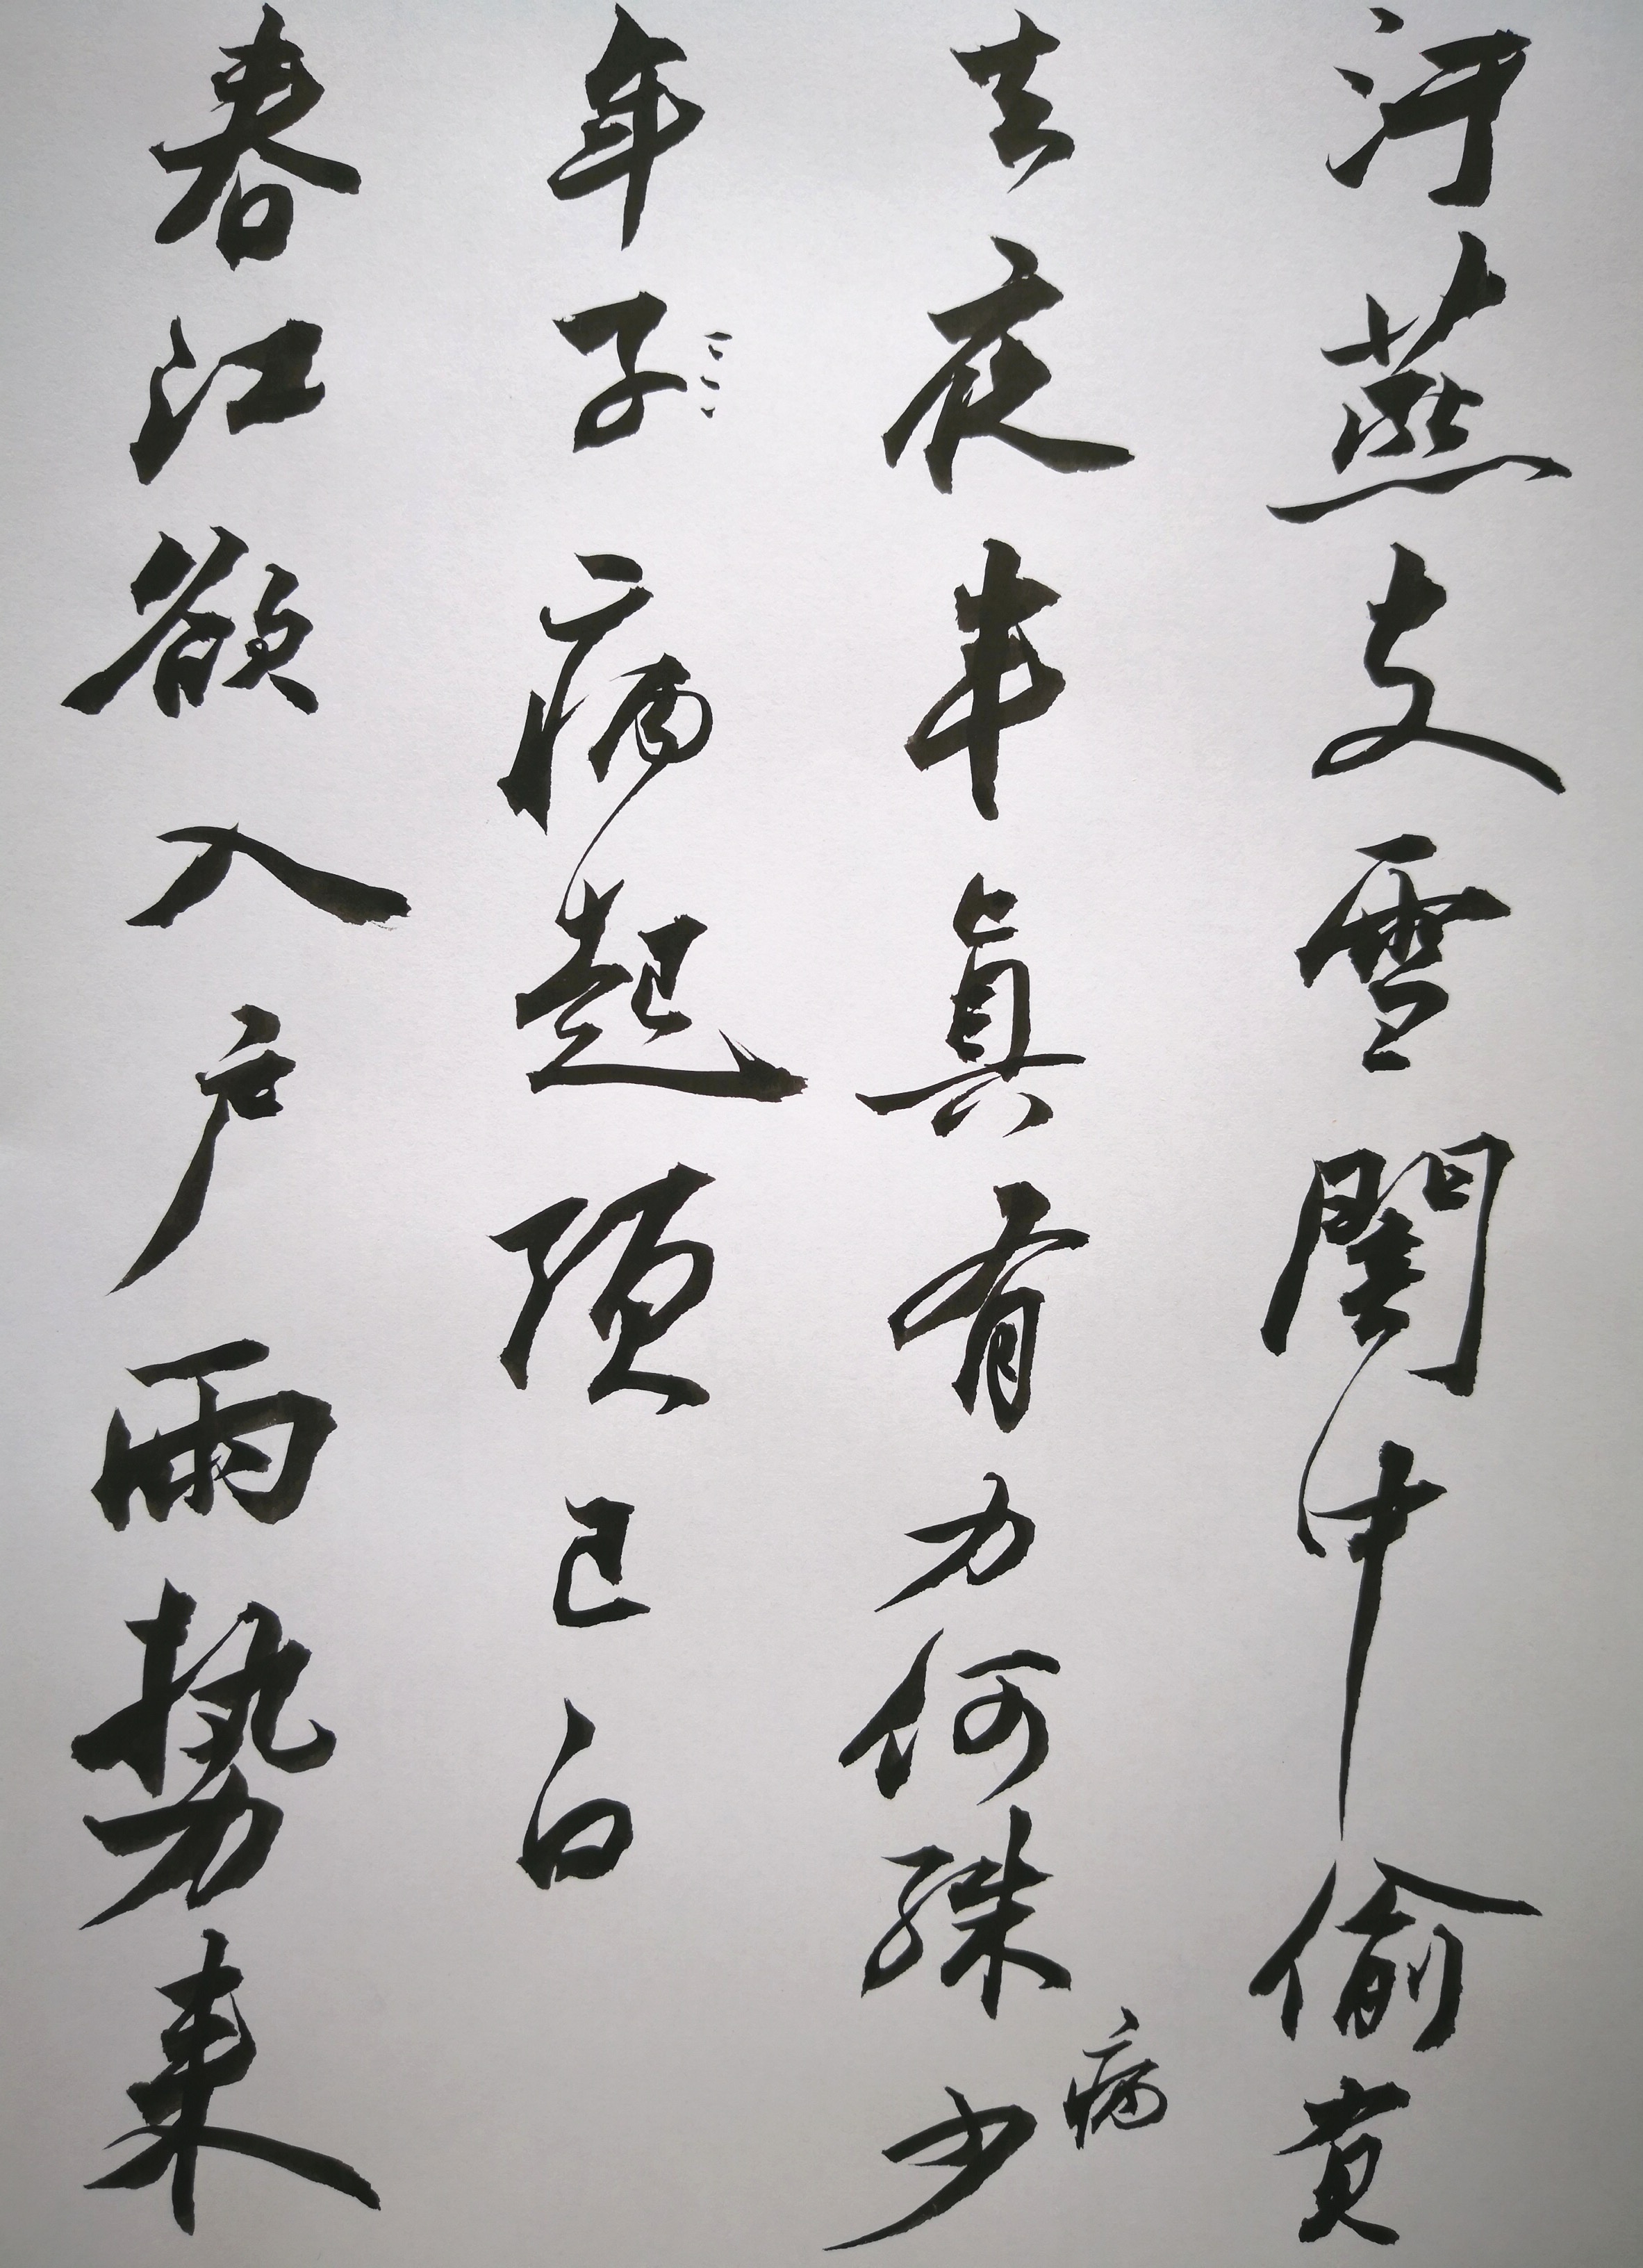 汙燕支雪闇中偷負
去夜半真有力何殊病少
年子病起須已白
春江欲入戶雨勢來